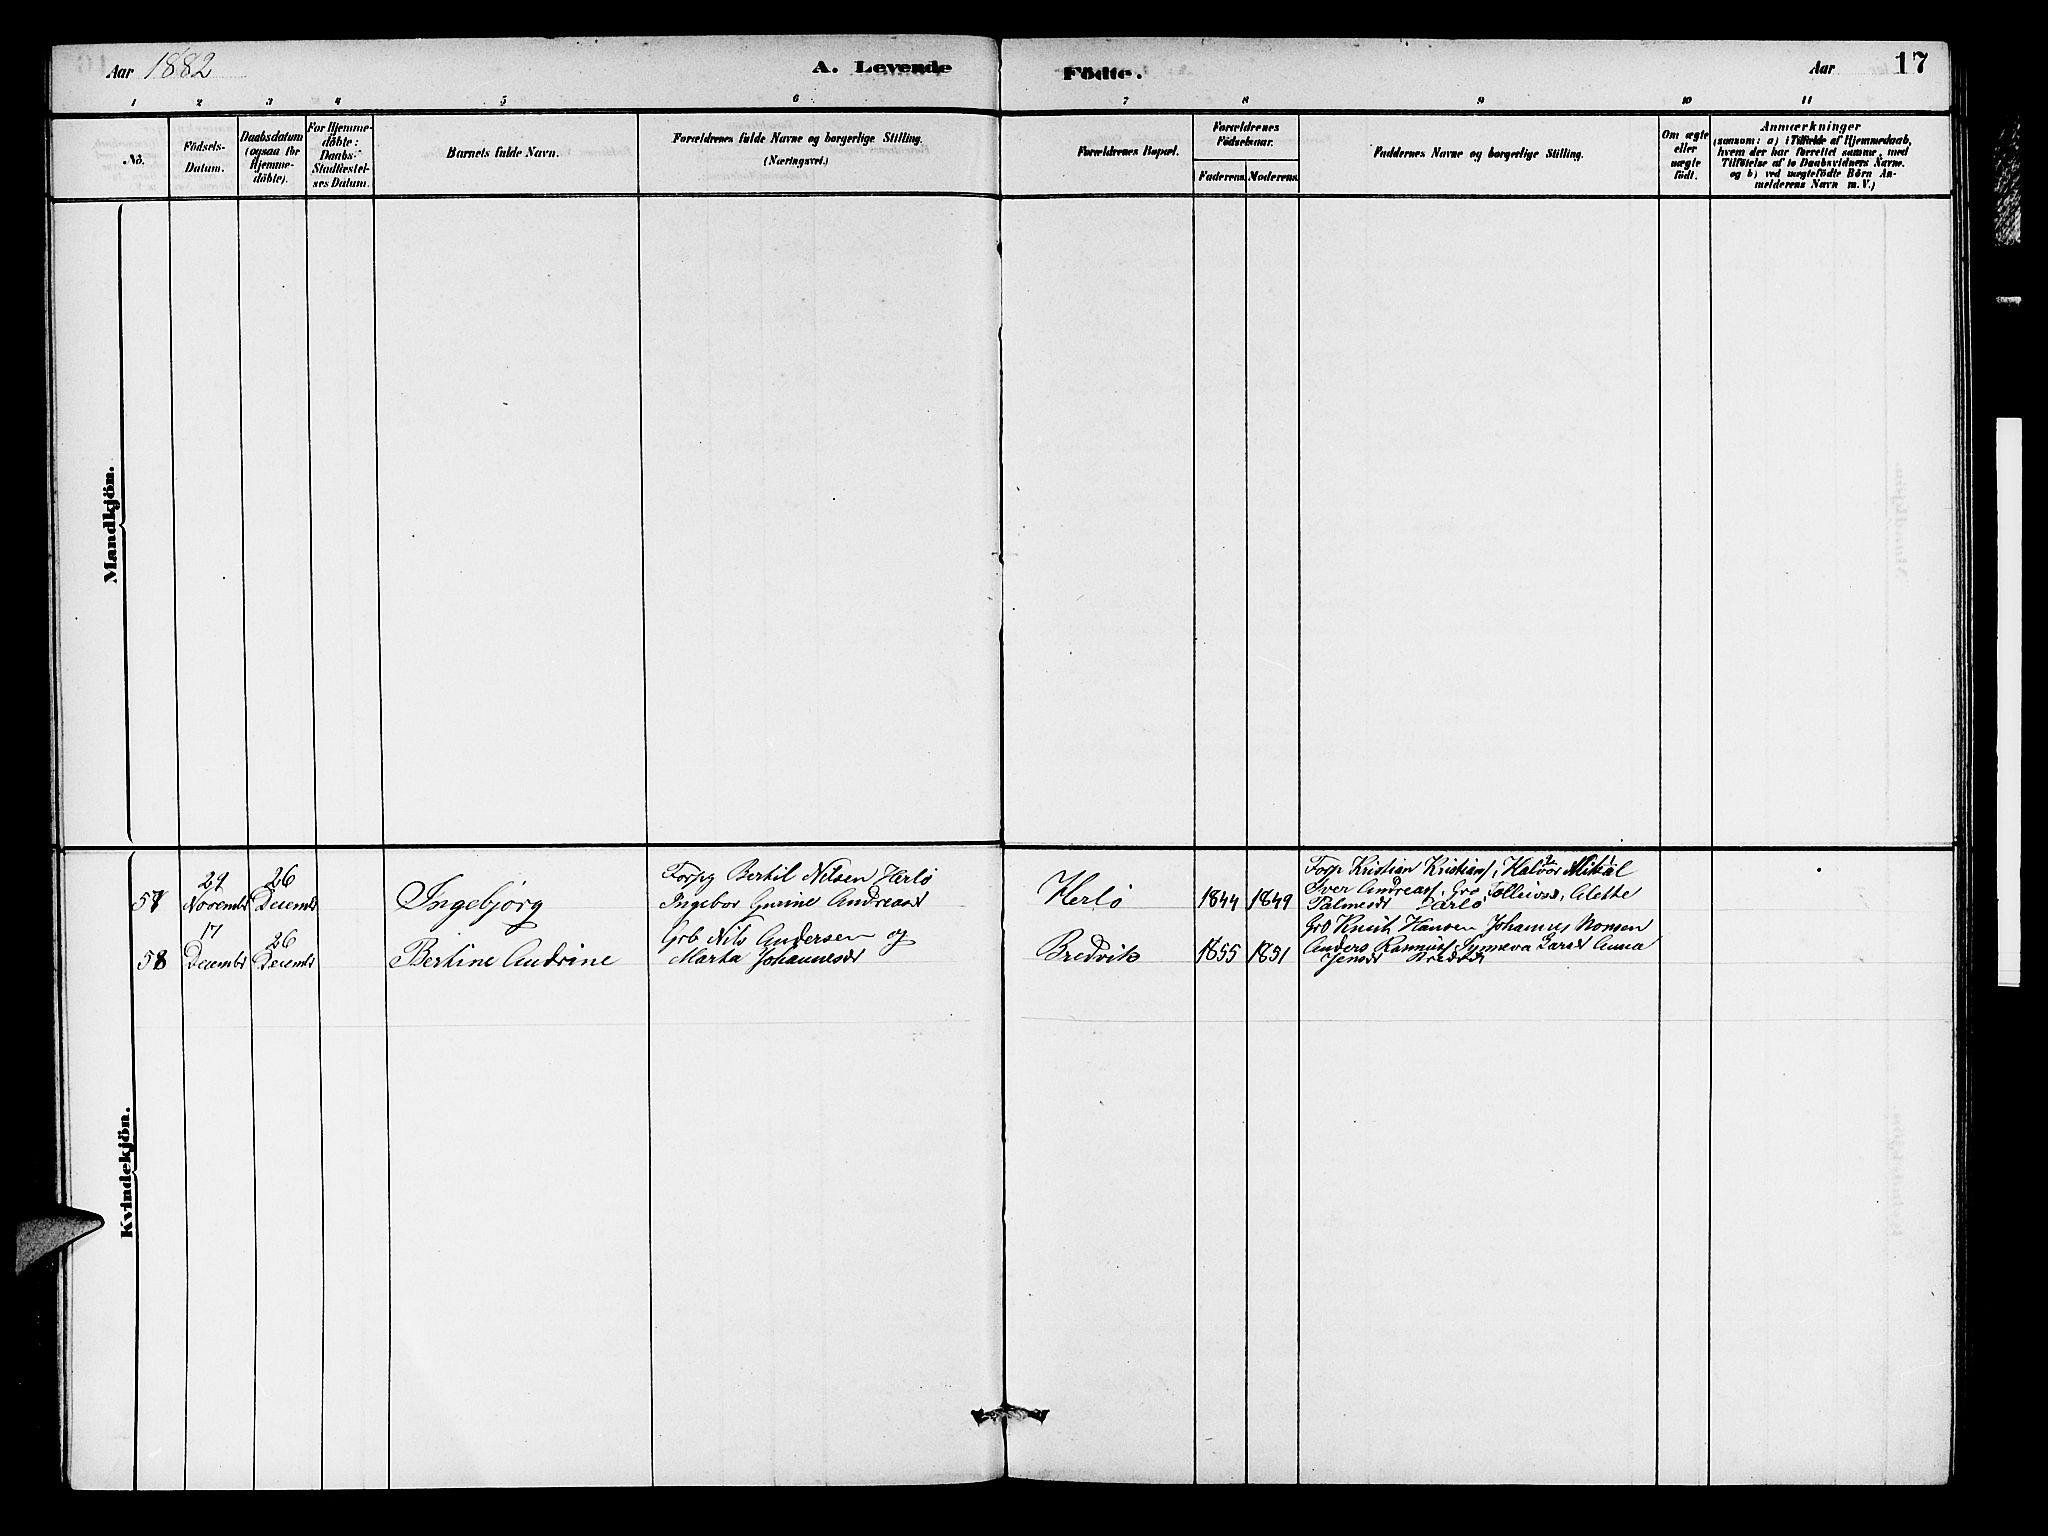 Aar 1882
A. Levende
Födte.
Aar
17
1 2 3 4 5 6 7 8 9 10 11
No.
Födsels-
Datum.
Daabsdatum
(ogsaa for
Hjemme-
döbte).
For Hjemme-
döbte:
Daabs-
Stadfæstel-
ses Datum.
Barnets fulde Navn.
Forældrenes fulde Navne og borgerlige Stilling.
(Næringsvei.)
Forældrenes Bopæl.
Forældrenes
Födselsaar.
Faderens. Moderens.
Faddernes Navne og borgerlige Stilling.
Om ægte
eller
uægte
födt.
Anmærkninger
(saasom: a) i Tilfælde af Hjemmedaab,
hvem der har forrettet samme, med
Tilföielse af to Daabsvidners Navne.
og b) ved uægtefödte Börn An-
melderens Navn m. V.)
Mandkjön.
Kvindekjön.
57
29
Novembr
26
Decembr
Ingebjörg
Forpg Bertil Nilsen Herlö
Ingebor Gurine Andreasd
Herlö
1844 1849
Forp Kristian Kristians, Halvor Mikkal
Iver Andreass, Gro Tollivsd, Alette
Palmesdr Herlö
58
17
Decembr
26
Decembr
Bertine Andrine
Grb Nils Andersen og
Marta Johannesdr
Bredvik
1855 1851
Grb Knut Hansen Johannes Monsen
Anders Rasmuss Synneva Larsd Anna
Jensdr Bredvik